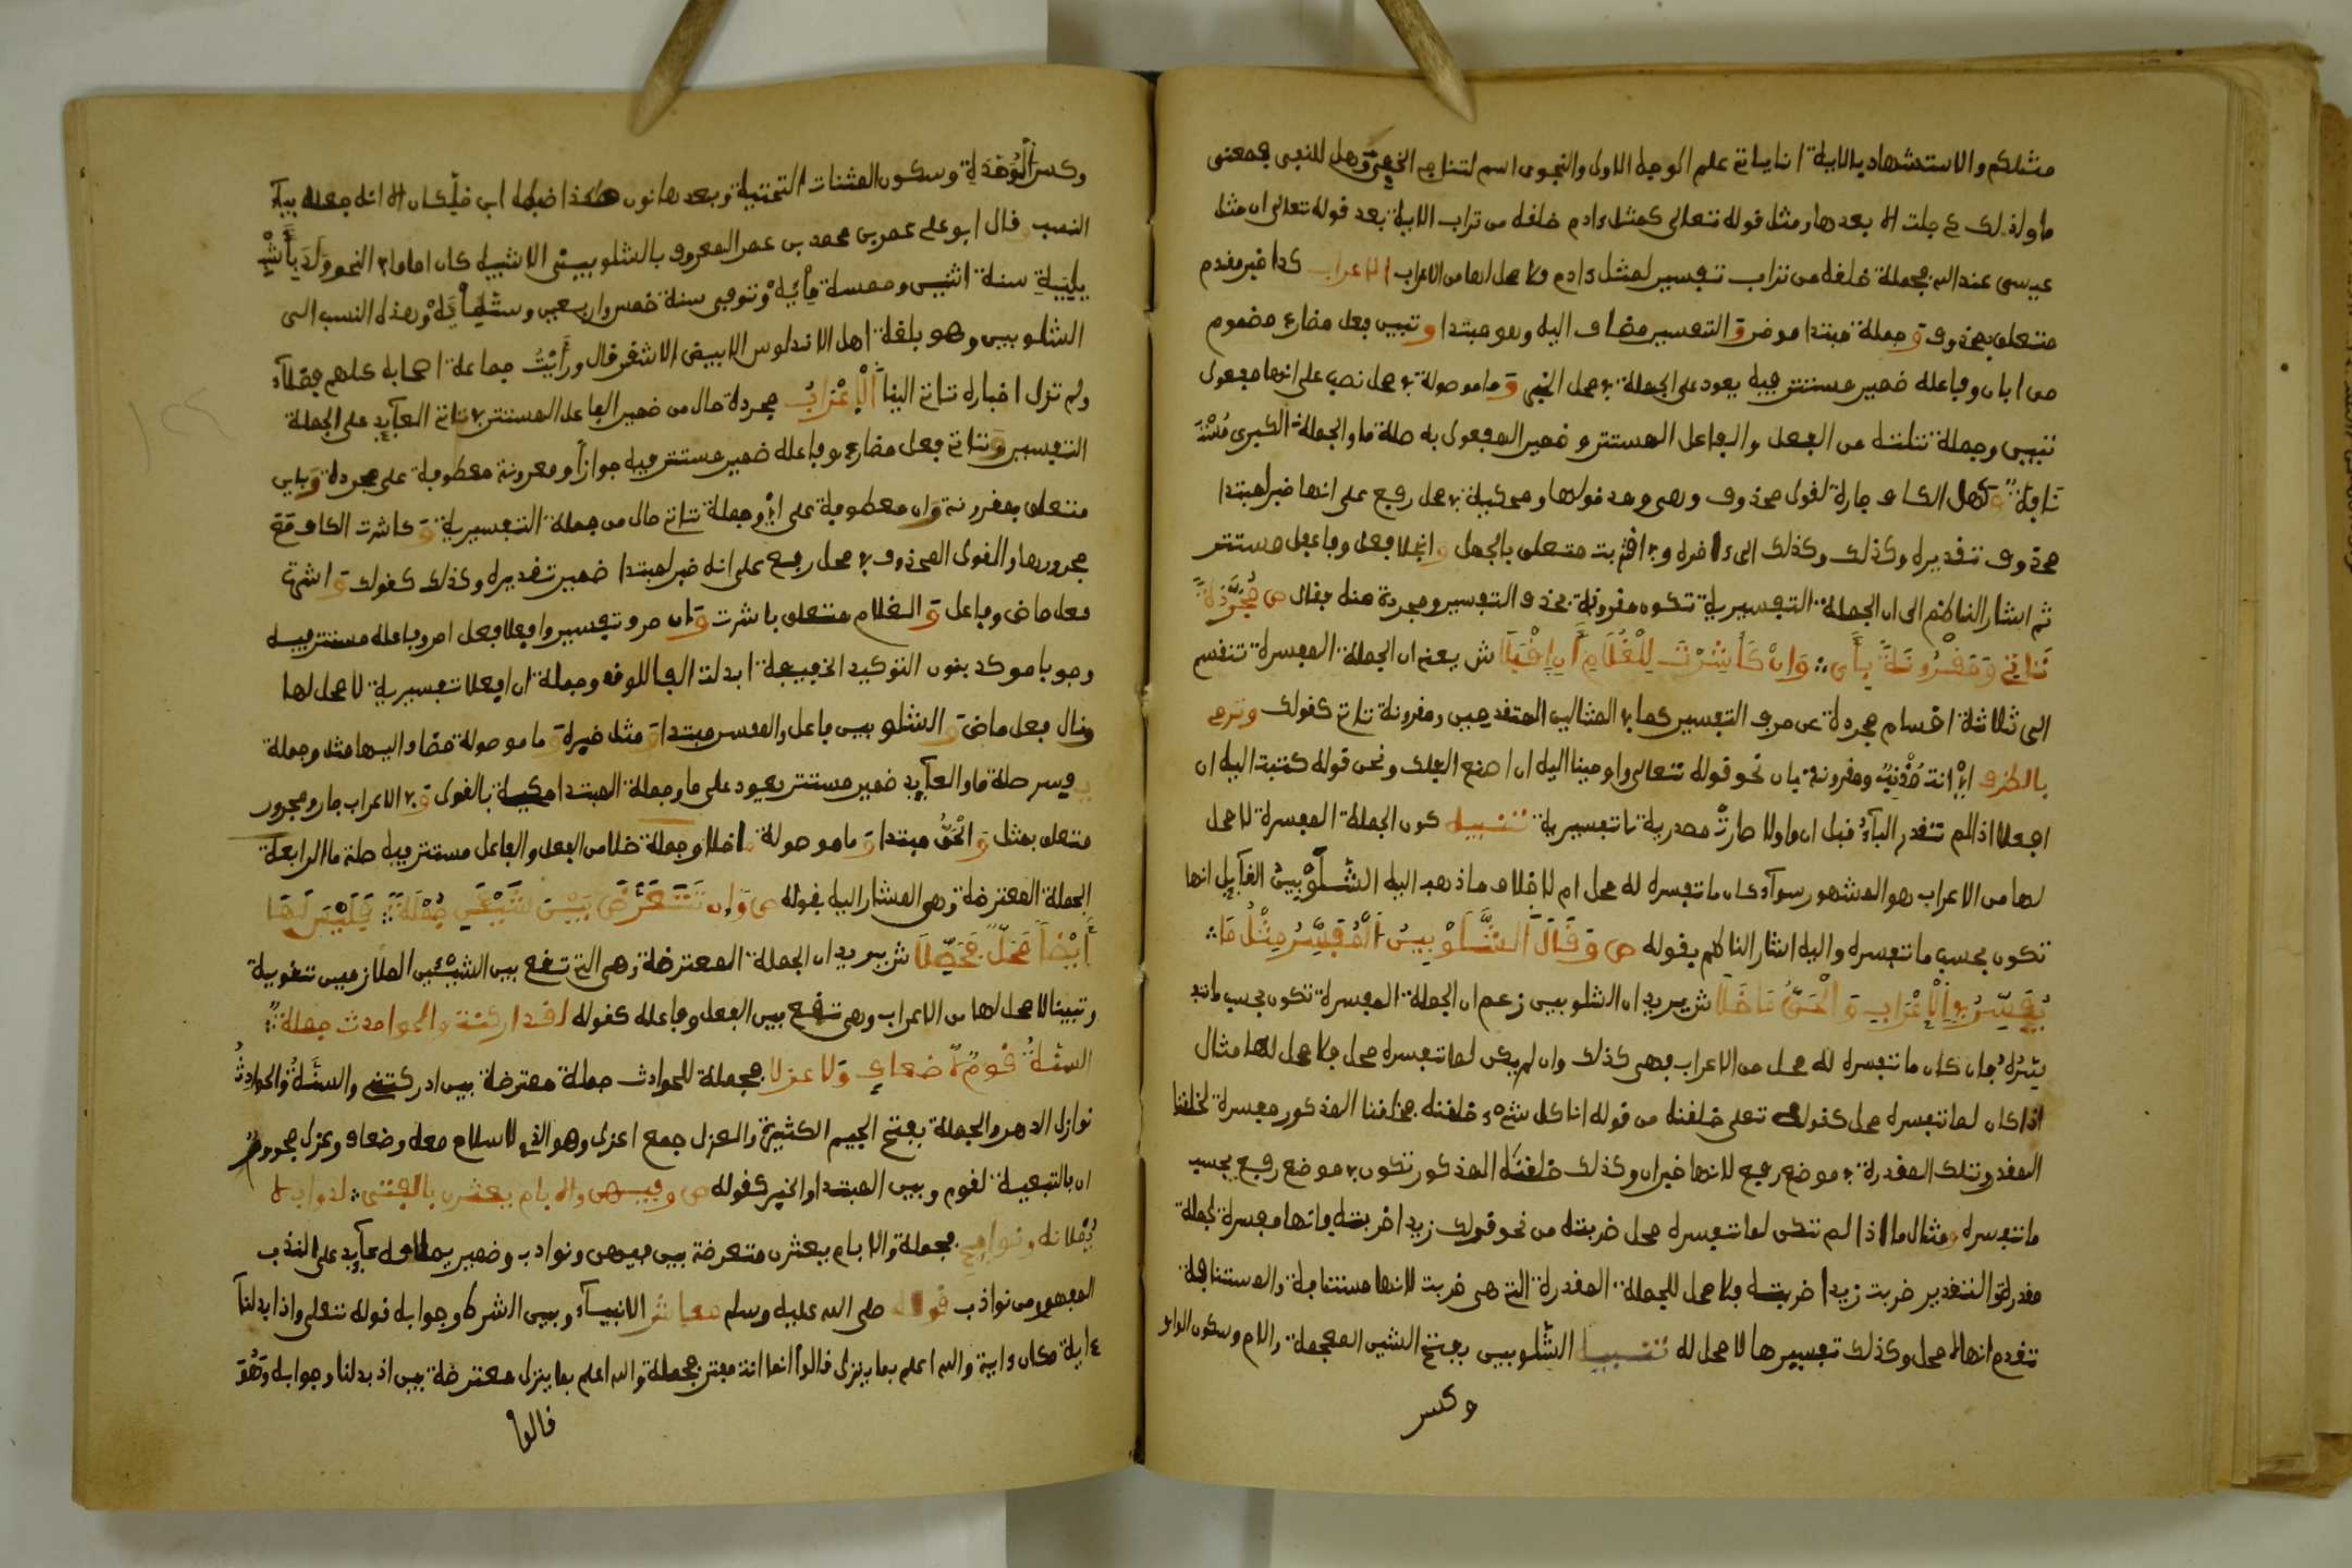 مثلكم والاستشهاد بالاية انما ياتي على الوجه الاول والنجوى اسم لتناجيهم الخفي وهل للنفي بمعنى
ما ولذلك دخلت الا بعدها ومثل قوله تعالى كمثل ءادم خلقه من تراب الاية بعد قوله تعالى ان مثل
عيسى عند الله فجملة خلقه من تراب تفسير لمثل ءادم فلا محل لها من الاعراب الاعراب كذا خبر مقدم
متعلق بمحذوف وجملة مبتدا موخر والتفسير مضاف اليه وهو مبتدا وتبين فعل مضارع مضموم
من ابان وفاعله ضمير مستتر فيه يعود على الجملة في محل الخبر وما موصولة في محل نصب على انها مفعول
تبين وجملة تلته من الفعل والفاعل المستتر وضمير المفعول به صلة ما والجملة الكبرى مستا
نافة كهل الكاف جارة لقول محذوف وهي وهذ قولها ومحكية في محل رفع على انها خبر لمبتدا
محذوف تقديره وكذلك وكذلك الى ءاخره وفي اقتربت متعلق بالجهل وانجلا فعل وفاعل مستتر
ثم اشار الناظم الى ان الجملة التفسيرية تكون مقرونة بحذف التفسير ومجردة منه فقال ص مجردة
تاتي ومقرونة باي وان كاشرت للغلام ان افعلا ش يعني ان الجملة المفسرة تنقسم
الى ثلاثة اقسام مجردة عن حرف التفسير كما في المثالين المتقدمين ومقرونة تاتي كقولك وترمي
بالطرف اي انت مذنب ومقرونة بان نحو قوله تعالى واوحينا اليه ان اصنع الفلك ونحو قوله كتبت اليه ان
افعلا اذا لم تقدر الباء قبل ان والا صارت مصدرية لا تفسيرية تنبيه كون الجملة المفسرة لا محل
لها من الاعراب هو المشهور سواء كان ما تفسره له محل ام لا خلاف ما ذهب اليه الشلوبين القايل انها
تكون بحسب ما تفسره واليه اشار الناظم بقوله ص وقال الشلوبين المفسر مثل ما
يفسر في الاعراب والحق ما خلا ش يريد ان الشلوبين زعم ان الجملة المفسرة تكون بحسب ما تفـ
ـسره فان كان ما تفسره له محل من الاعراب فهي كذلك وان لم يكن لما تفسره محل فلا محل لها مثال
اذا كان لما تفسره محل كقوله تعلى خلقنه من قوله انا كل شيء خلقنه فخلقنا المذكور مفسرة لخلقنا
المقدر وتلك المقدرة في موضع رفع لانها خبر ان وكذلك خلقنه المذكور تكون في موضع رفع بحسب
ما تفسره ومثال ما اذا لم تكن لما تفسره محل ضربته من نحو قولك زيدا ضربته فانها مفسرة لجملة
مقدرة والتقدير ضربت زيدا ضربته فلا محل للجملة المقدرة التي هي ضربت لانها مستانفة والمستانفة
تقدم انها لا محل وكذلك تفسيرها لا محل له تنبيه الشلوبين بفتح الشين المعجمة واللام وسكون الواو
وكسر
وكسر الموحدة وسكون المثنات التحتية وبعدها نون هكذا ضبطه ابن خلكان الا انه جعله بياء
النسب قال ابو علي عمر بن محمد بن عمر المعروف بالشلوبيني الاشبيلي كان اماما في النحو ولد باشبـ
ـيلية سنة اثنين وخمسة ماية وتوفي سنة خمس واربعين وستماية وهذه النسب الى
الشلوبين وهو بلغة اهل الاندلوس الابيض الاشقر قال ورايت جماعة اصحابه كلهم فضلاء
ولم تزل اخباره تاتي الينا الاعراب مجردة حال من ضمير الفاعل المستتر في تاتي العايد على الجملة
التفسير وتاتي فعل مضارع وفاعله ضمير مستتر فيه جوازا ومقرونة معطوفة على مجردة وباي
متعلق بمقرونة وان معطوفة على اي وجملة تاتي حال من جملة التفسيرية وكاشرت الكاف مع
مجرورها والقول المحذوف في محل رفع على انه خبر لمبتدا ضمير تقديره وكذلك كقولك واشرت
فعل ماض وفاعل والغلام متعلق باشرت وان حرف تفسير وافعلا فعل امر وفاعله مستتر فيه
وجوبا موكد بنون التوكيد الخفيفة ابدلت الفا للوقف وجملة ان افعلا تفسيرية لا محل لها
وقال فعل ماض والشلوبين فاعل والمفسر مبتدا ومثل خبره وما موصولة مضاف اليها مثل وجملة
يفسر صلة ما والعايد ضمير مستتر يعود على ما وجملة المبتدا محكية بالقول وفي الاعراب جار ومجرور
متعلق بمثل والحق مبتدا وما موصولة وخلا وجملة خلا من الفعل والفاعل مستتر فيه صلة ما الرابعة
الجملة المعترضة وهي المشار اليه بقوله ص وان تتعرض بين شيئين جملة فليس لها
ايضا محل محصلا ش يريد ان الجملة المعترضة وهي التي تقع بين الشيئين المتلازمين تقوية
وتبيينا لا محل لها من الاعراب وهي تقع بين الفعل وفاعله كقوله لقد ادركتني والحوادث جملة
اسنة قوم لا ضعاف ولا عزلا فجملة للحوادث جملة معترضة بين ادركتني والسنة والحوادث
نوازل الدهر والجملة بفتح الجيم الكثيرة والعزل جمع اعزل وهو الذي لا سلاح معه وضعاف وعزل مجرور
ان بالتبعية لقوم وبين المبتدا والخبر كقوله ص وفيهن والايام يعثرن بالفتى نوادب لا
يمللنه ونوائح فجملة والايام يعثرن متعرضة بين فيهن ونوادب وضمير يمللنه عايد على الندب
المفهوم من نوادب قوله صلى الله عليه وسلم معاشر الانبياء وبين الشرط وجوابه قوله تعلى واذا بدلنا
ءاية مكان ءاية والله اعلم بما ينزل قالوا انما انت مفتر فجملة والله اعلم بما ينزل معترضة بين اذ بدلنا وجوابه وهو
قالوا